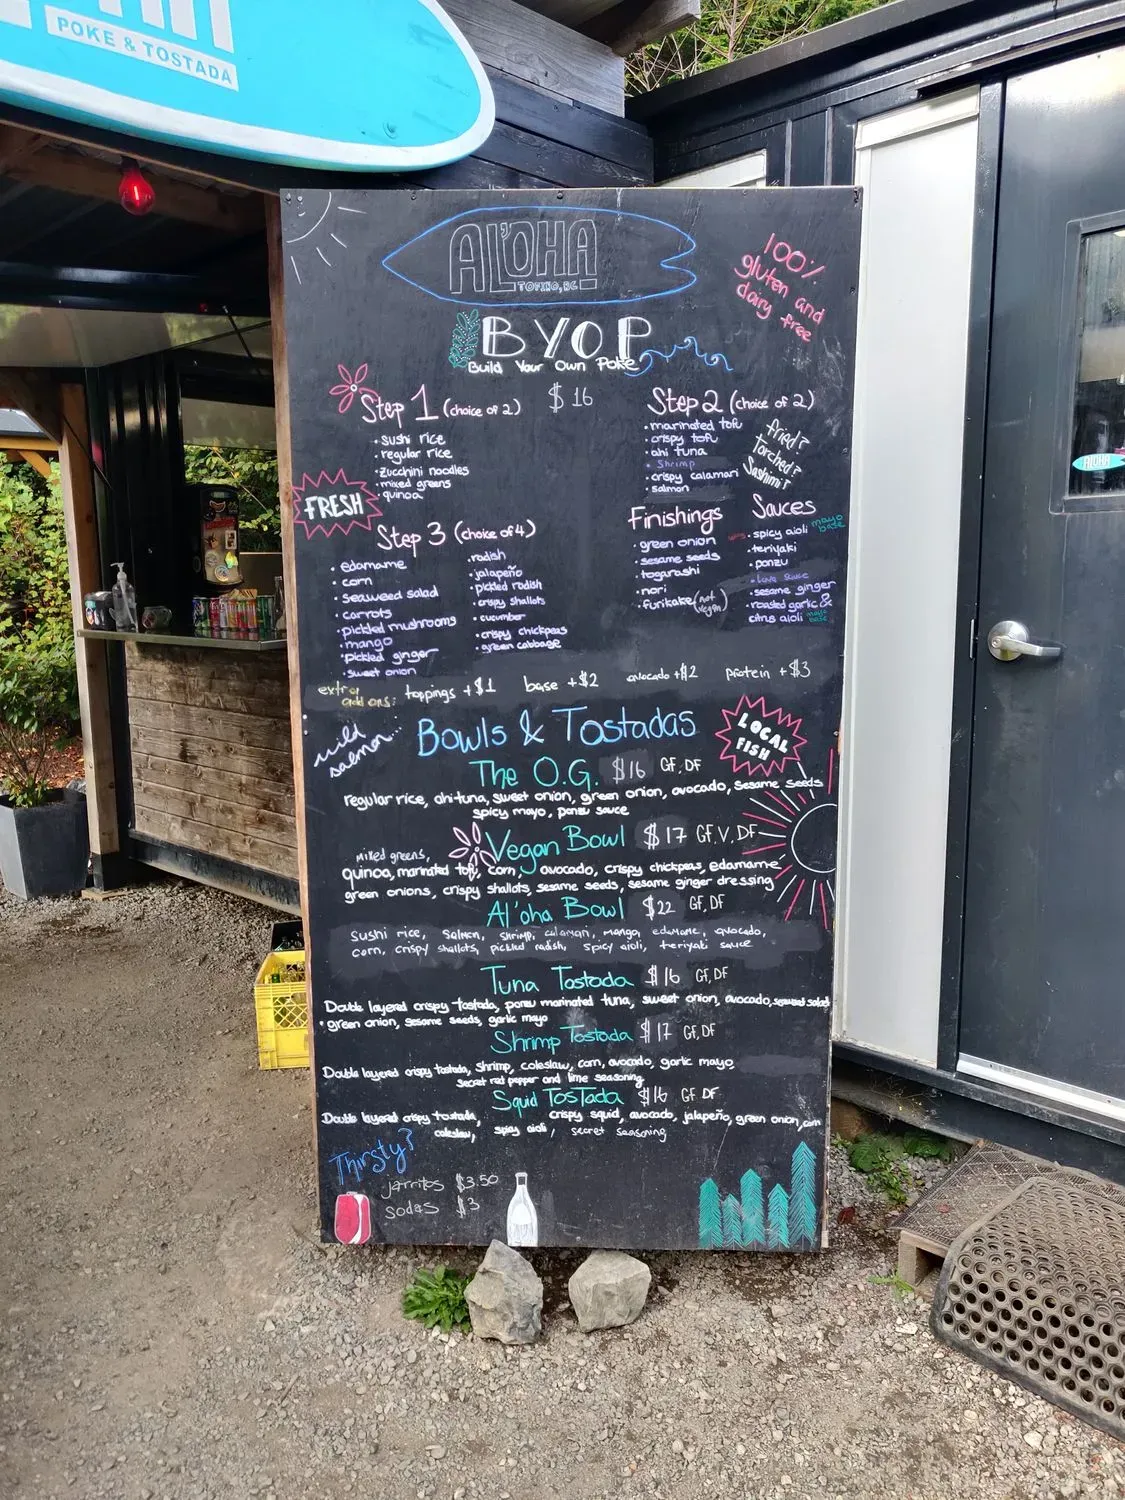 POKE & TOSTADA
AL'OHA
TOFINO, BC
100%
gluten and
dairy free
BYOP
Build Your Own Poke
$16
Step 1 (choice of 2)
• sushi rice
• regular rice
• zucchini noodles
• mixed greens
• quinoa
FRESH
Step 2 (choice of 2)
• marinated tofu
• crispy tofu
• ahi tuna
• Shrimp
• crispy calamari
• salmon
fried?
torched?
Sashimi?
Step 3 (choice of 4)
• edamame
• corn
• seaweed salad
• carrots
• pickled mushrooms
• mango
• pickled ginger
• sweet onion
• radish
• jalapeño
• pickled radish
• crispy shallots
• cucumber
• crispy chickpeas
• green cabbage
Finishings
• green onion
• sesame seeds
• togarashi
• nori
• furikake (not vegan)
Sauces
• spicy aioli mayo base
• teriyaki
• ponzu
• Love sauce
• sesame ginger
• roasted garlic &
citrus aioli mayo base
extra
add ons: toppings +$1 base +$2 avocado +$2 protein +$3
wild
salmon...
Bowls & Tostadas
LOCAL
FISH
The O.G. $16 GF, DF
regular rice, ahi-tuna, sweet onion, green onion, avocado, sesame seeds
spicy mayo, ponzu sauce
Vegan Bowl $17 GF, V, DF
Mixed greens,
quinoa, marinated tofu, corn, avocado, crispy chickpeas, edamame
green onions, crispy shallots, sesame seeds, sesame ginger dressing
Al'oha Bowl $22 GF, DF
Sushi rice, Salmon, shrimp, calamari, mango, edamame, avocado,
corn, crispy shallots, pickled radish, spicy aioli, teriyaki sauce
Tuna Tostada $16 GF, DF
Double layered crispy tostada, ponzu marinated tuna, sweet onion, avocado, seaweed salad
• green onion, sesame seeds, garlic mayo
Shrimp Tostada $17 GF, DF
Double layered crispy tostada, shrimp, coleslaw, corn, avocado, garlic mayo,
secret red pepper and lime seasoning
Squid Tostada $16 GF DF
Double layered crispy tostada, crispy squid, avocado, jalapeño, green onion, corn
coleslaw, spicy aioli, secret seasoning
Thirsty?
jarritos $3.50
sodas $3
ALOHA